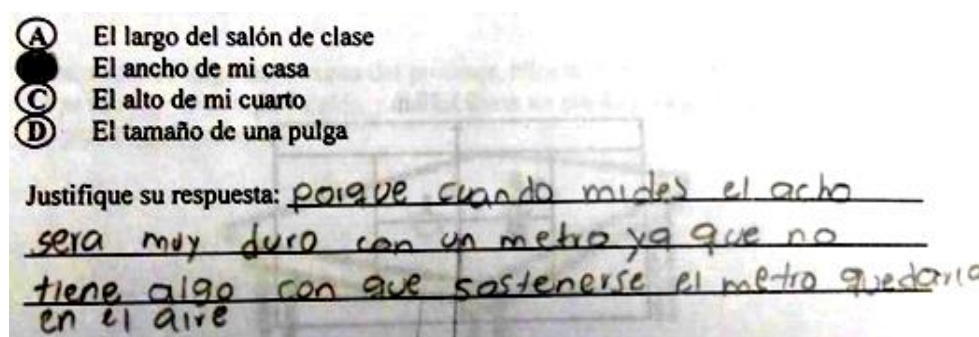 A El largo del salón de clase
El ancho de mi casa
C El alto de mi cuarto
D El tamaño de una pulga
Justifique su respuesta: porque cuando mides el acho
sera muy duro con un metro ya que no
tiene algo con que sostenerse el metro quedaria
en el aire